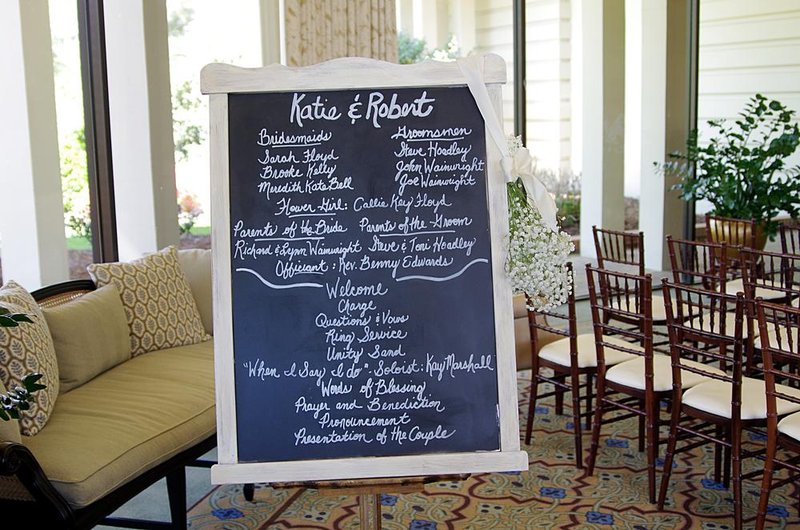 Katie & Robert
Bridesmaids
Sarah Floyd
Brooke Kelly
Meredith Kate Bell
Groomsmen
Steve Hoadley
John Wainwright
Joe Wainwright
Flower Girl: Callie Key Floyd
Parents of the Bride
Richard & Lynn Wainwright
Parents of the Groom
Steve & Toni Hoadley
Officiant: Rev. Benny Edwards
Welcome
Charge
Questions & Vows
Ring Service
Unity Sand
"When I Say I do" - Soloist: Kay Marshall
Words of Blessing
Prayer and Benediction
Pronouncement
Presentation of the Couple